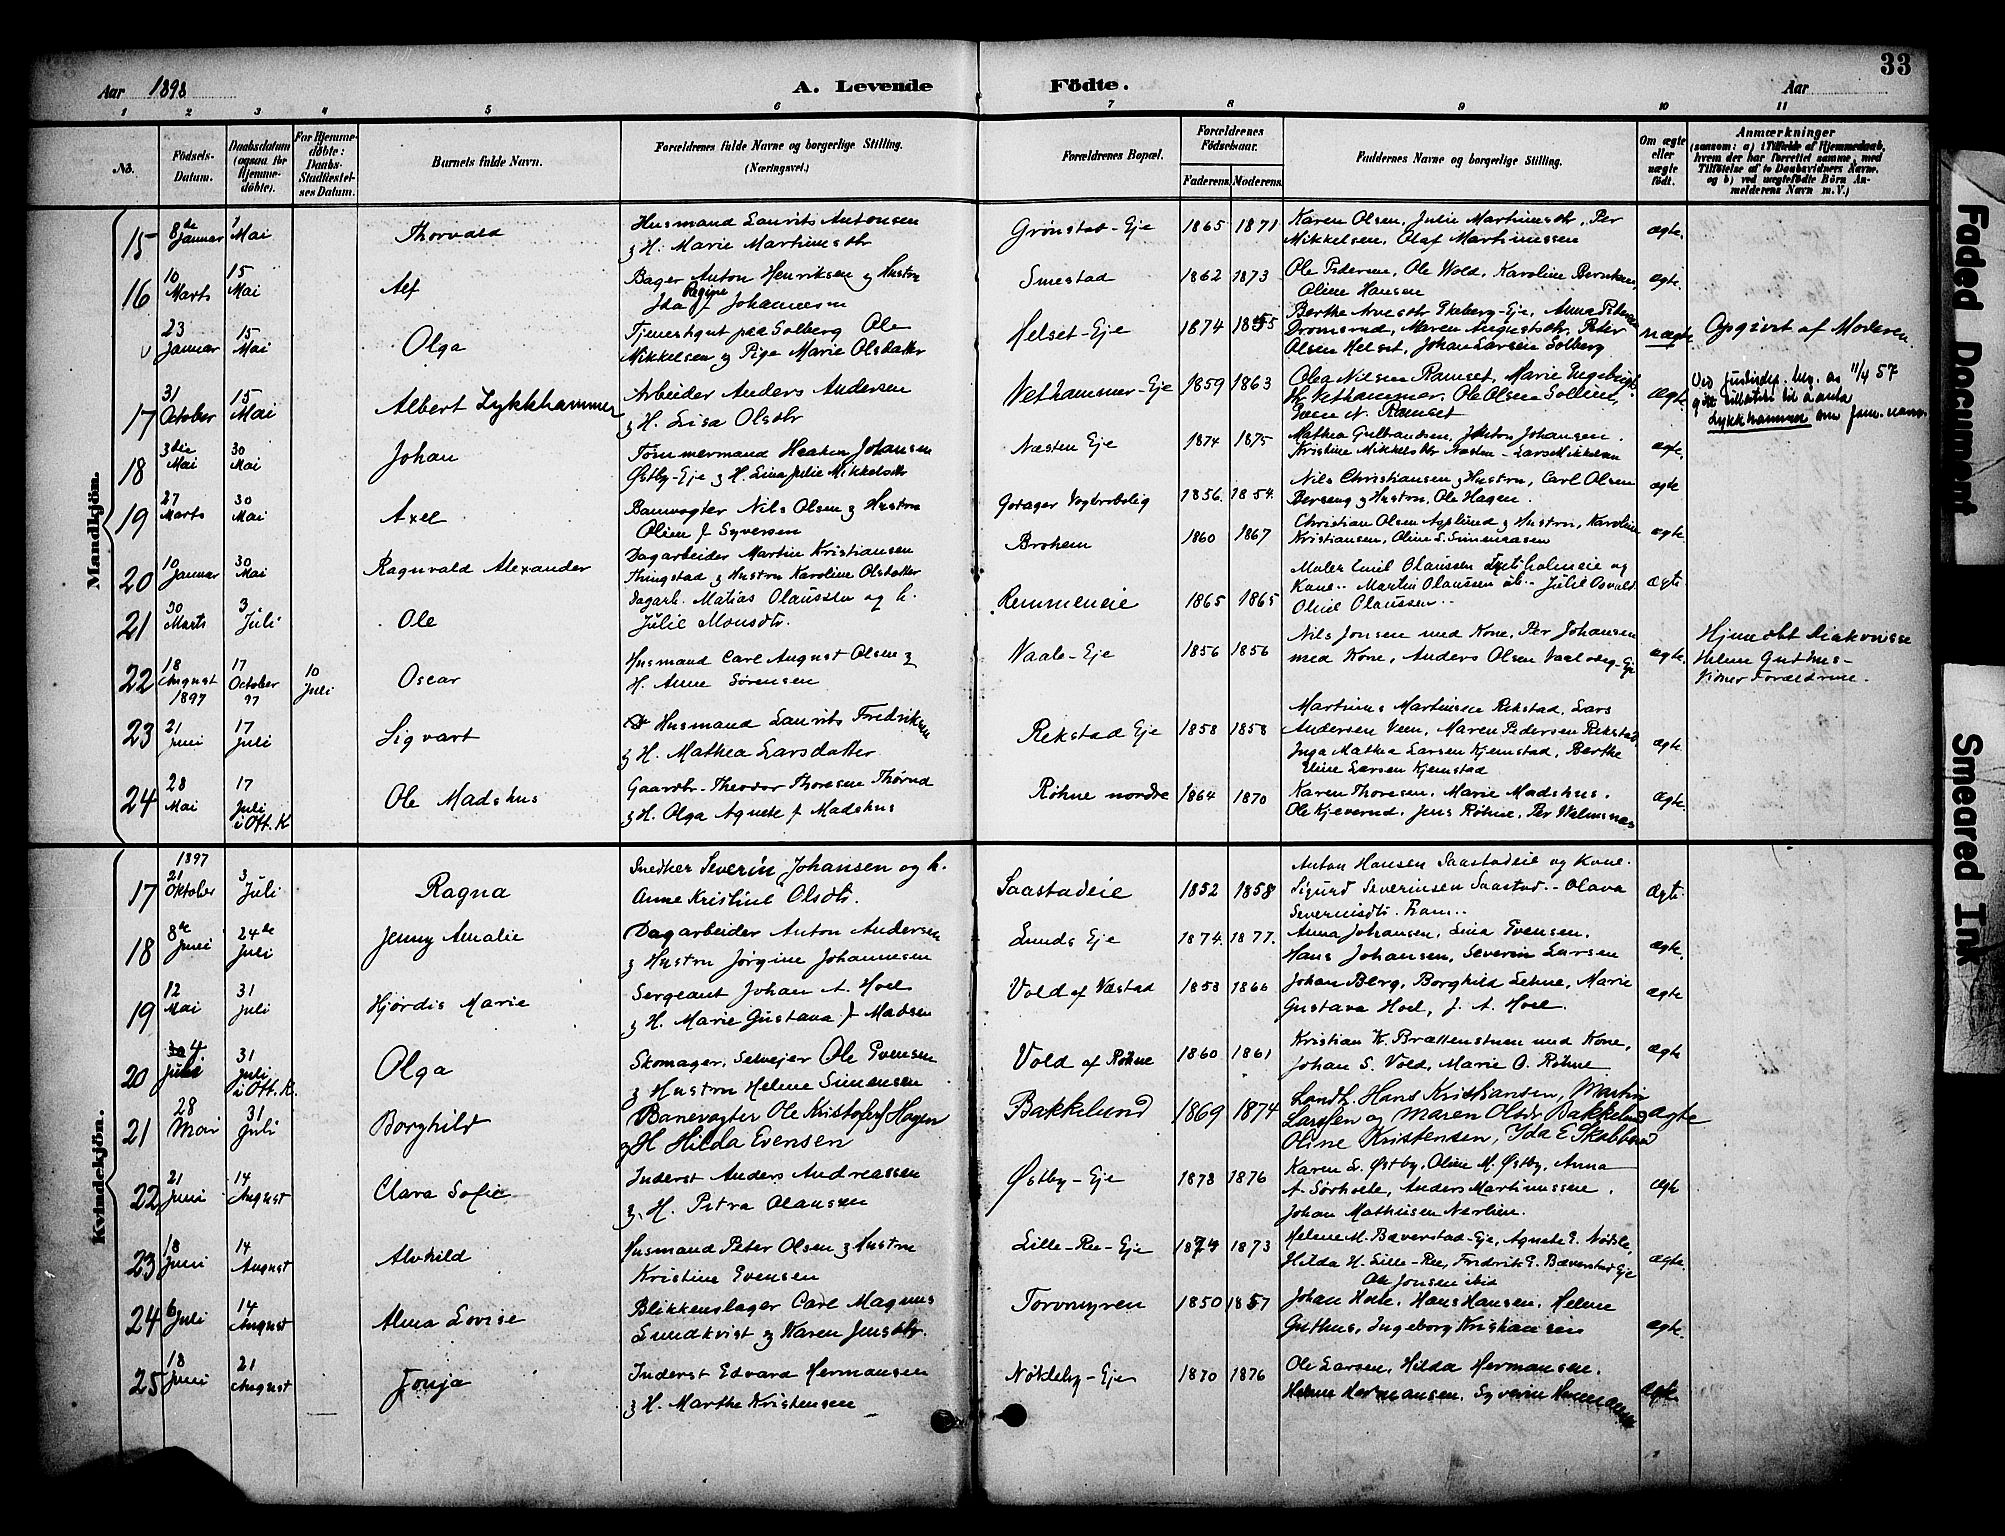 33
Aar 1898
A. Levende Födte.
Aar
1 2 3 4 5 6 7 8 9 10 11
No. Födsels-Datum. Daabsdatum (ogsaa for Hjemme-döbte). For Hjemme-döbte: Daabs-Stadfæstelses Datum. Barnets fulde Navn. Forældrenes fulde Navne og borgerlige Stilling. (Næringsvei.) Forældrenes Bopæl. Forældrenes Födselsaar. Faderens. Moderens. Faddernes Navne og borgerlige Stilling. Om ægte eller uægte födt.
Anmærkninger
(saasom: a) i Tilfælde af Hjemmedaab, hvem der har forrettet samme, med Tilföielse af to Daabsvidners Navne, og b) ved uægtefödte Börn Anmelderens Navn m. V.)
Mandkjön.
15 8de Januar 1 Mai Thorvald Husmand Laurits Antonsen
& H. Marie Martinusdtr Grønstad-Eje 1865 1871 Karen Olsen, Julie Martinusdtr, Per
Mikkelsen, Olaf Martinussen ægte.
16 10 Marts 15 Mai Alf Bager Anton Henriksen & Hustru
Ida Regine f Johannesen Smestad 1862 1873 Ole Pedersen, Ole Wold, Karoline
Oline Hansen ægte.
23 Januar 15 Mai Olga Tjenestgut paa Solberg Ole
Mikkelsen & Pige Marie Olsdatter Helset-Eje 1874 Ekeberg-Eje, Anna
Maren Augustdtr, Peter
Olsen Helset, Johan Larsen Solberg uægte Opgivet af Moderen.
17 31 October 15 Mai Albert Lykkhammer Arbeider Anders Andersen
& H. Lisa Olsdtr Vethammer-Eje 1859 1863 Olea Nilsen Ramset, Marie
Vethammer, Ole Olsen
Even N. Ramset ægte. 11/4 57
Lykkhammer
18 3die Mai 30 Mai Johan Tømmermand Haaken Johansen
Østby-Eje & H. Lina Julie Mikkelsdtr Næsten Eje 1874 1875 Mathea Gulbrandsen, Anton Johansen.
Kristine Mikkelsdtr Næsten - Lars Mikkelsen ægte.
19 27 Marts 30 Mai Axel Banevogter Nils Olsen & Hustru
Oline f Syversen 1856. 1854. Nils Christiansen & Hustru, Carl Olsen
Berseng & Hustru, Ole Hagen. ægte
20 10 Januar 30 Mai Ragnvald Alexander Dagarbeider Martin Kristiansen
Thingstad & Hustru Karoline Olsdatter Brohem 1860 1867 Christian Olsen Asplund & Hustru, Karoline
Kristiansen, Oline S. Simensen ægte
21 30 Marts 3 Juli Ole Dagarb. Matias Olaussen og h.
Julie Monsdtr. Remmeneie 1865 1865 Maler Emil Olaussen og
Kone.. Martin Olaussen ib.. Julie Osvald
Olaussen.. ægte
22 18 August 1897 17 October 97 10 Juli Oscar Husmand Carl August Olsen &
H. Anne Sørensen Vaale-Eje 1856 1856 Nils Jonsen med Kone, Per Johansen
med Kone, Anders Olsen ægte. Diakonisse
Helene Guthus-
Vidner Forældrene.
23 21 Juni 17 Juli Sigvart Husmand Laurits Fredriksen
& H. Mathea Larsdatter Rekstad Eje 1858 1858 Martinus Martinsen Rekstad, Lars
Andersen Veen, Maren Pedersen Rekstad
Inga Mathea Larsen Kjemstad, Berthe
Eline Larsen Kjemstad ægte
24 28 Mai 17 Juli i Ott. K Ole Madshus Gaardbr. Theodor Thoresen
& H. Olga Agnete f Madshus Røhne nordre 1864 1870 Karen Thoresen, Marie Madshus.
Ole Kjeverud, Jens Røhne, Per ægte.
Kvindekjön.
17 1897 21 Oktober 3 Juli Ragna Snedker Severin Johansen og h.
Anne Kristine Olsdtr. Saastadeie 1852 1858 Anton Hansen Saastadeie og Kone.
Sigurd Severinsen Saastad.. Olava
Severinsdtr. Fram.. ægte.
18 8de Juni 24de Juli Jenny Amalie Dagarbeider Anton Andersen
& Hustru Jørgine Johannesen Lunds Eje 1874. 1877. Anna Johansen, Lina Evensen.
Hans Johansen, Severin Larsen ægte.
19 12 Mai 31 Juli Hjørdis Marie Sergeant Johan A. Hoel
& H. Marie Gustava f Madsen Vold af Væstad 1853 1866 Johan Berg, Borghild Lehne, Marie
Gustava Hoel, J. A. Hoel. ægte
20 4. Juli 31 Juli i Ott. K. Olga Skomager, Selvejer Ole Evensen
& Hustru Helene Simensen Vold af Røhne 1860 1861 Kristian K. Brættenstuen med Kone,
Johan S. Vold, Marie O. Røhne ægte
21 28 Mai 31 Juli Borghild Banevogter Ole Kristofersf Hagen
& H Hilda Evensen Bakkelund 1869 1874 Landh. Hans Kristiansen, Martin
Larssen og Maren Olsdr Bakkelund
Oline Kristensen, Ida E Skabberud ægte
22 21 Juni 14 August Clara Sofie Inderst Anders Andreassen
& H. Petra Olausen Østby-Eje 1873 1876 Karen L. Østby, Oline M. Østby, Anna
A. Sørholte, Anders Martinussen.
Johan Mathisen Nerlien. ægte
23 18 Juni 14 August Alvhild Husmand Peter Olsen & Hustru
Kristine Evensen Lille-Ree-Eje 1874 1873 Helene M. Bæverstad-Eje, Agnete E. Nøkle,
Hilda H. Lille-Ree, Fredrik E. Bæverstad Eje
Ole Jonsen ibid ægte.
24 6 Juli 14 August Alma Lovise Blikkenslager Carl Magnus
Lundkvist & Karen Jensdtr. Torvmyren 1850 1857 Johan Hoel, Hans Hansen, Helene
Guthus, Ingeborg Kristiansen ægte.
25 18 Juni 21 August Tonja Inderst Edvard Hermansen
& H. Marthe Kristensen Nøkleby-Eje 1870 1876 Ole Larsen, Hilda Hermansen.
Helene Hermansen, Syverin Hermansen ægte.
Faded Document
Smeared Ink